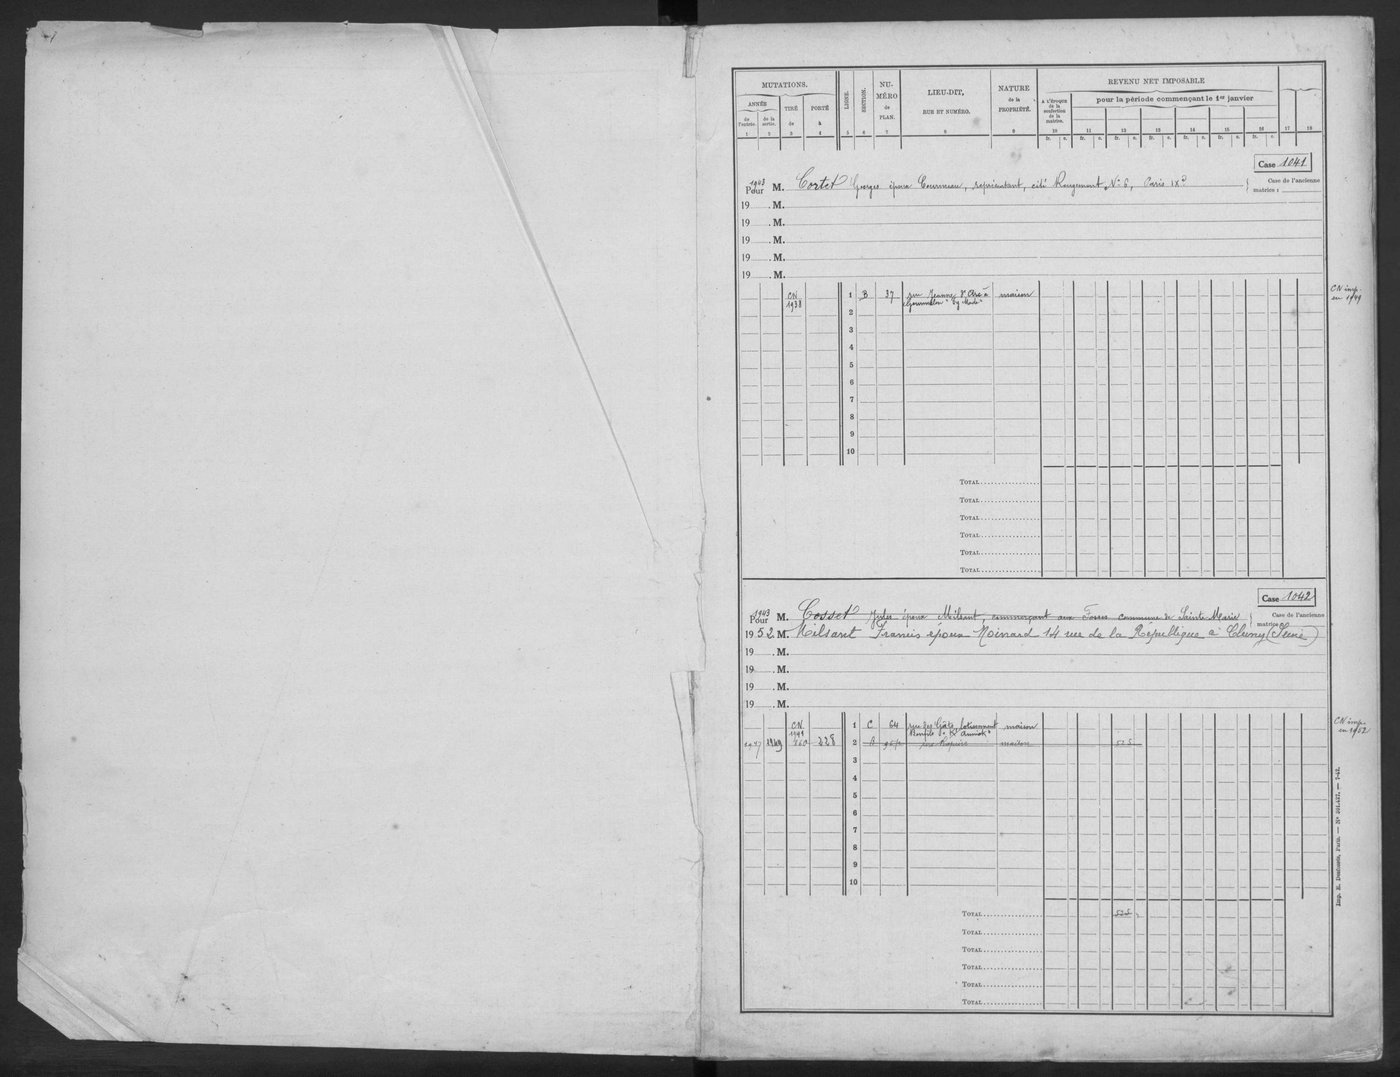 MUTATIONS.
ANNÉE
de l'entrée.
de la sortie.
TIRÉ de
PORTÉ à
LIGNE.
SECTION.
NUMÉRO de PLAN.
LIEU-DIT,
RUE ET NUMÉRO.
NATURE de la PROPRIÉTÉ.
REVENU NET IMPOSABLE
A L'ÉPOQUE de la confection de la matrice.
pour la période commençant le 1er janvier
1 2 3 4 5 6 7 8 9 10 11 12 13 14 15 16 17 18
fr. c. fr. c. fr. c. fr. c. fr. c. fr. c. fr. c.
Case 1041
1943
Pour M. Cortet Georges époux Courneau, représentant, cité Rougemont, No 6, Paris IXe
Case de l'ancienne matrice :
19 . M.
19 . M.
19 . M.
19 . M.
19 . M.
CN 1938 1 B 37 rue Jeanne d'Arc à maison
CN imp. en 1949
2
3
4
5
6
7
8
9
10
TOTAL
TOTAL
TOTAL
TOTAL
TOTAL
TOTAL
Case 1042
1943
Pour M. Cosset Jules époux Milsant, commerçant aux Forges commune de Sainte Marie
Case de l'ancienne matrice :
1952 M. Milsant Francis époux Moinard 14 rue de la République à Cluny
19 . M.
19 . M.
19 . M.
19 . M.
CN 1 C 64 rue des Gâts, lotissement maison
CN imp. en 1952
1949 228 2 B maison 525
3
4
5
6
7
8
9
10
TOTAL 525
TOTAL
TOTAL
TOTAL
TOTAL
TOTAL
Imp. E. Desfossés, Paris. — No 301.427. — 7-42.